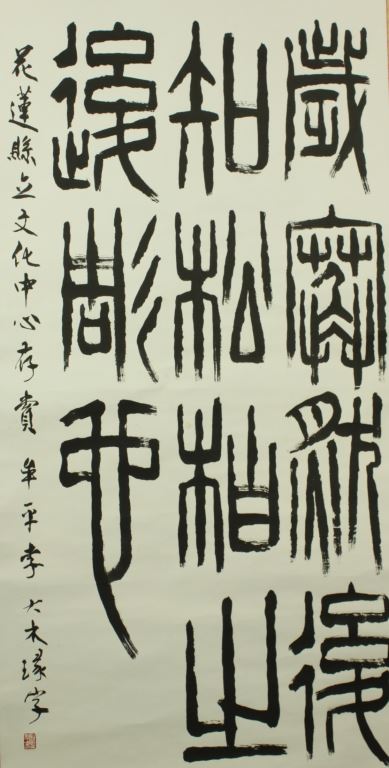 歲寒然後
知松柏之
後彫也
花蓮縣立文化中心存賞 牟平李大木篆字